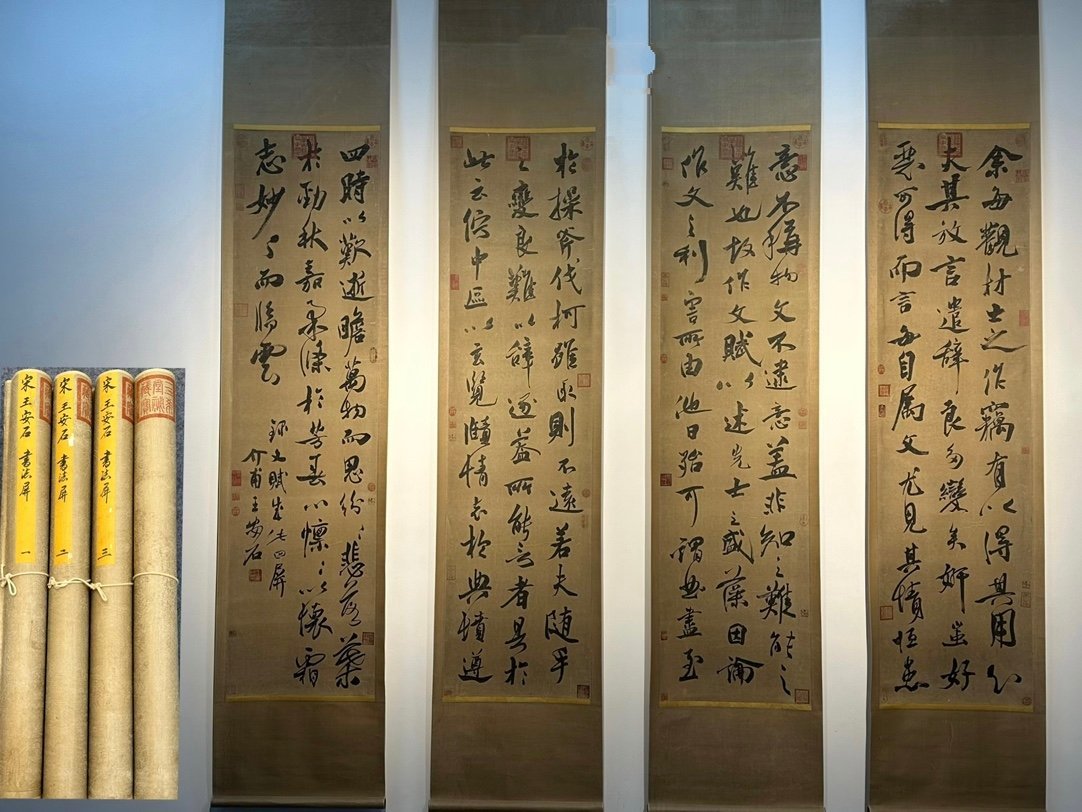 余每觀材士之作竊有以得其用心
夫其放言遣辭良多變矣妍蚩好
惡可得而言每自属文尤見其情恒患
意不稱物文不逮意蓋非知之難能之
難也故作文賦以述先士之盛藻因論
作文之利害所由他日殆可謂曲盡至
於操斧伐柯雖取則不遠若夫随手
之變良難以辭逐蓋所能言者具於
此云佇中區以玄覽頤情志於典墳遵
四時以歎逝瞻萬物而思紛〻悲落葉
於勁秋嘉柔條於芳春心懍〻以懷霜
志妙〻而臨雲
録文賦成此四屏
介甫王安石
宋 王安石 書法屏 一
宋 王安石 書法屏 二
宋 王安石 書法屏 三